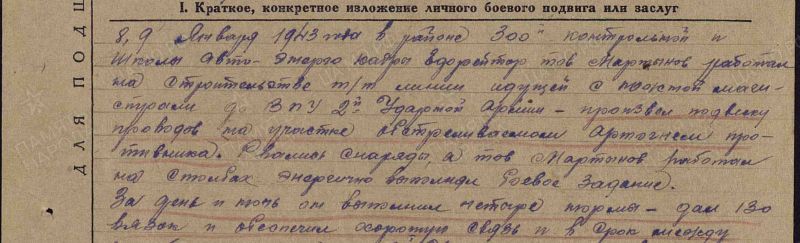 I. Краткое, конкретное изложение личного боевого подвига или заслуг
8, 9 Января 1943 года в районе 300й контрольной и
школы авто- ефрейтор тов Мартынов работал
на строительстве т/т линии идущей с маги-
страли до ВПУ 2й Ударной Армии – произвел подвеску
проводов на участке обстреливаемом артогнем про-
тивника. Рвались снаряды, а тов Мартынов работал
на столбах энергично выполняя боевое задание.
За день и ночь он выполнил четыре нормы – дал 130
вязок и обеспечил хорошую связь и в срок между
ДЛЯ ПОДШ